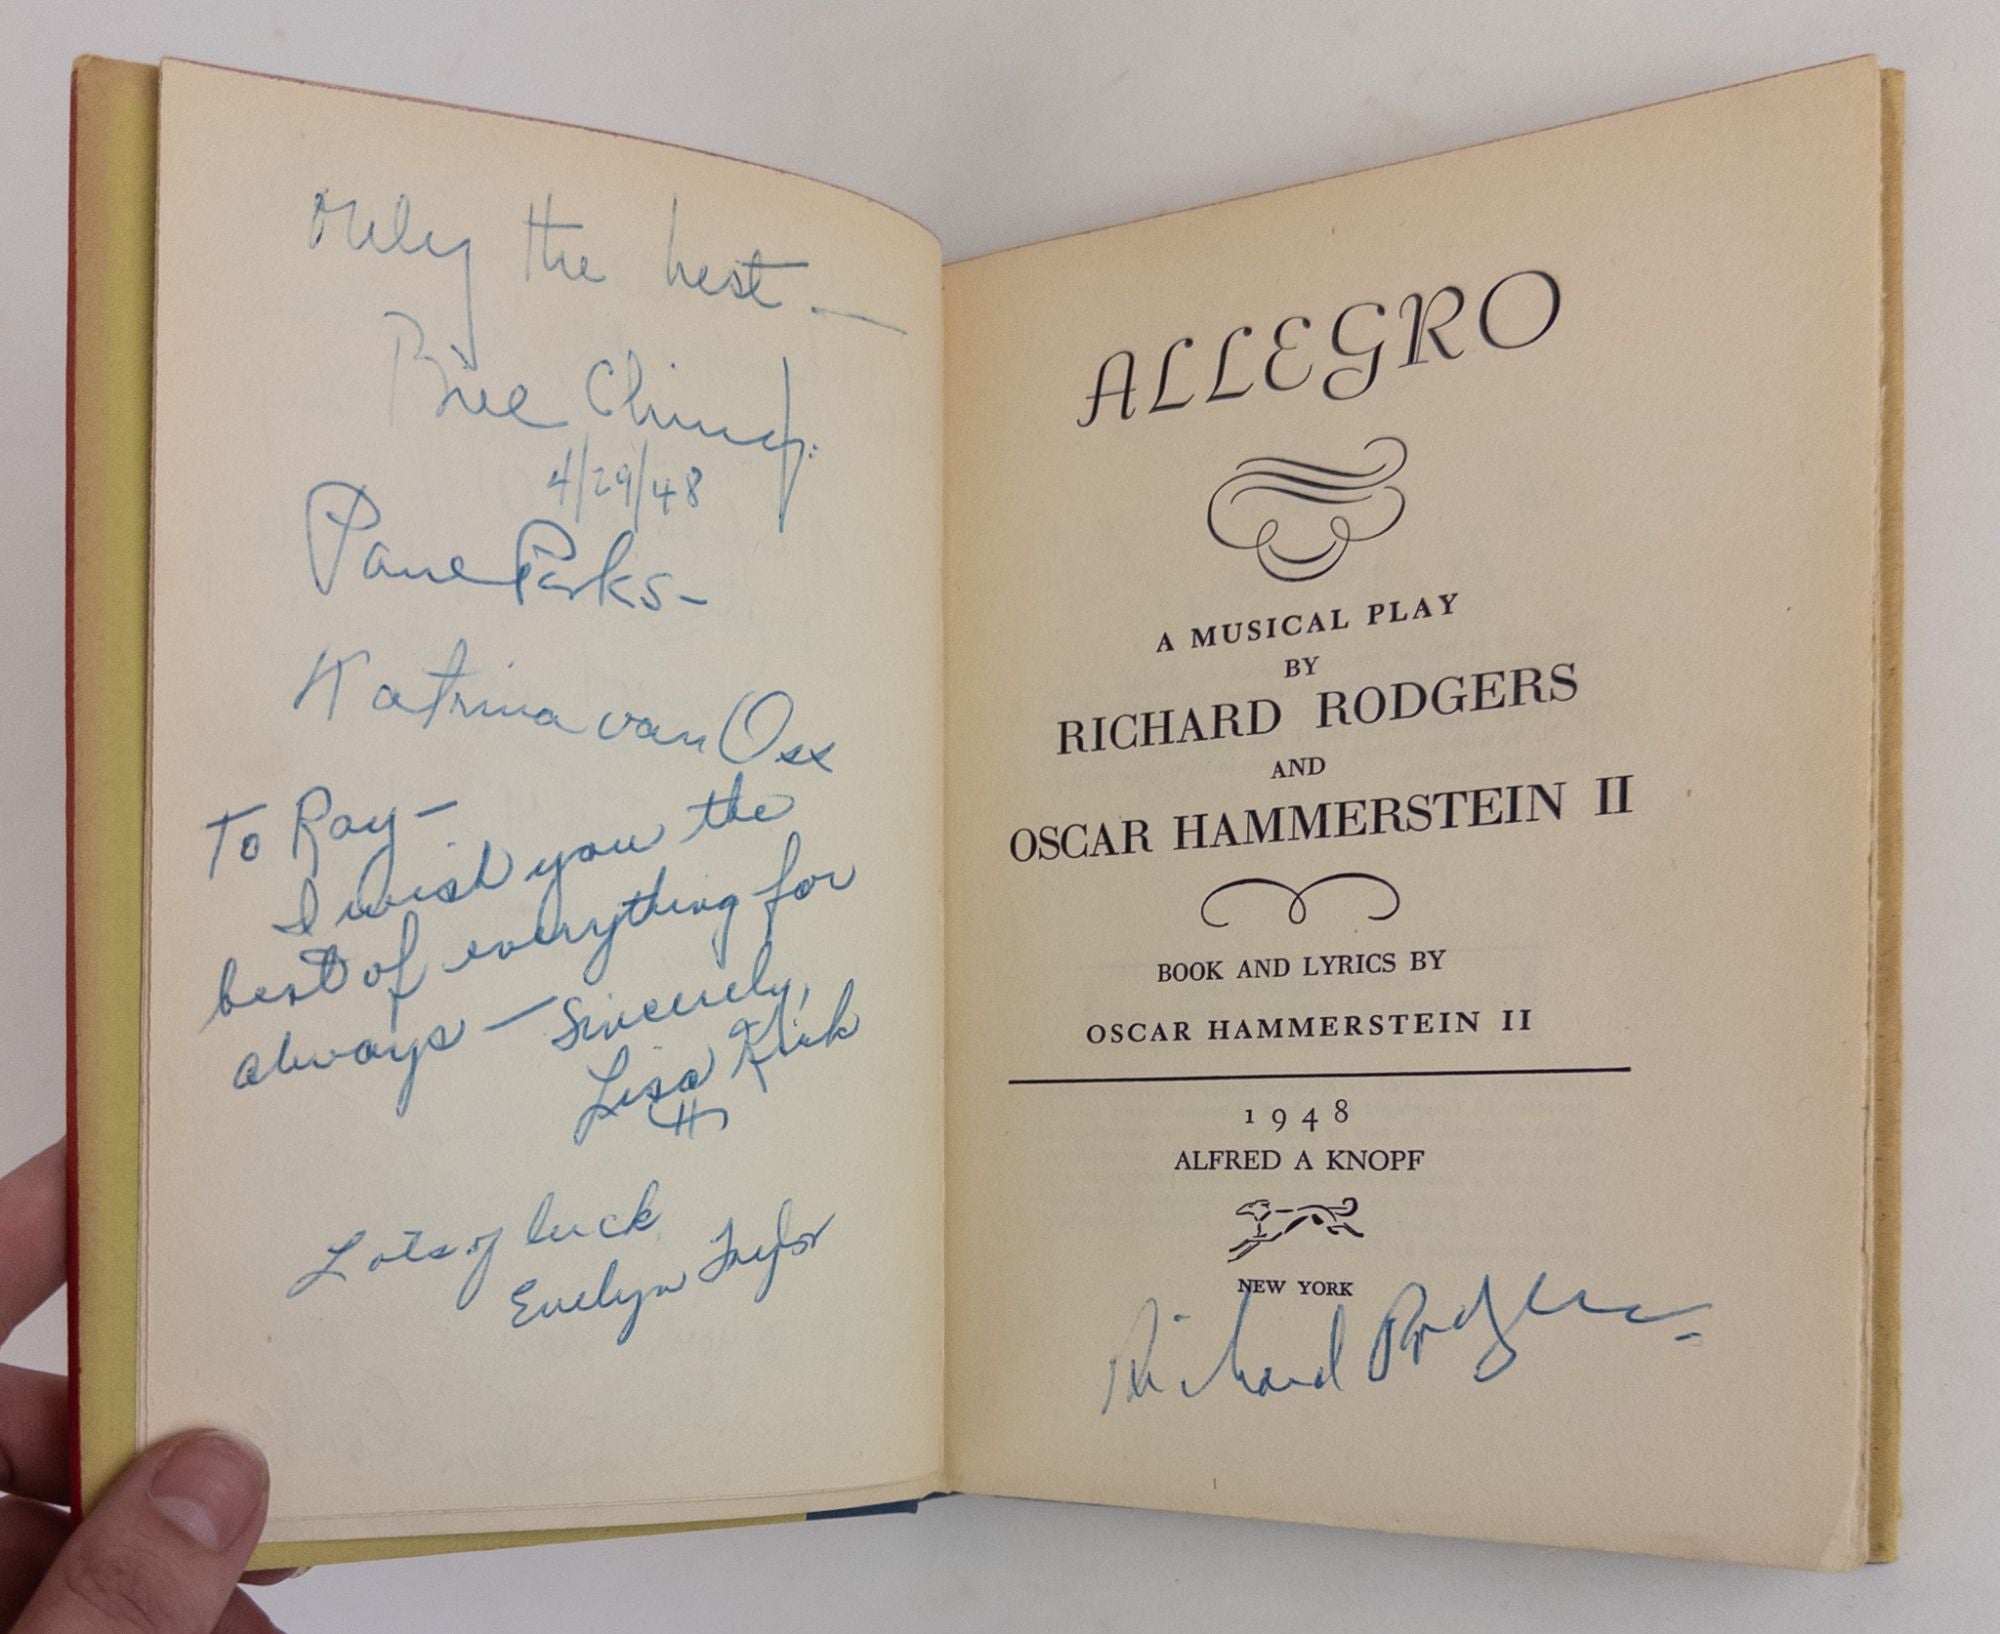 Only the best —
Bill Ching.
4/29/48
Paul Parks -
Katrina van Oss
To Ray —
I wish you the
best of everything for
always — Sincerely,
Lisa Kirk
Lots of luck
Evelyn Taylor
ALLEGRO
A MUSICAL PLAY
BY
RICHARD RODGERS
AND
OSCAR HAMMERSTEIN II
BOOK AND LYRICS BY
OSCAR HAMMERSTEIN II
1948
ALFRED A KNOPF
NEW YORK
Richard Rodgers